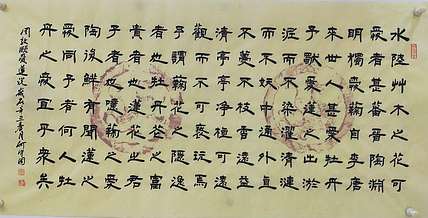 水陸艸木之花可
愛者甚蕃晉陶淵
明獨愛菊自李唐
來世人甚愛牡丹
予獨愛蓮之出淤
泥而不染濯清漣
而不妖中通外直
不蔓不枝香遠益
清亭亭净植可遠
觀而不可褻玩焉
予謂菊花之隱逸
者也牡丹花之富
貴者也蓮花之君
子者也噫菊之愛
陶後鮮有聞蓮之
愛同予者何人牡
丹之愛宜乎衆矣
周敦頤愛蓮說